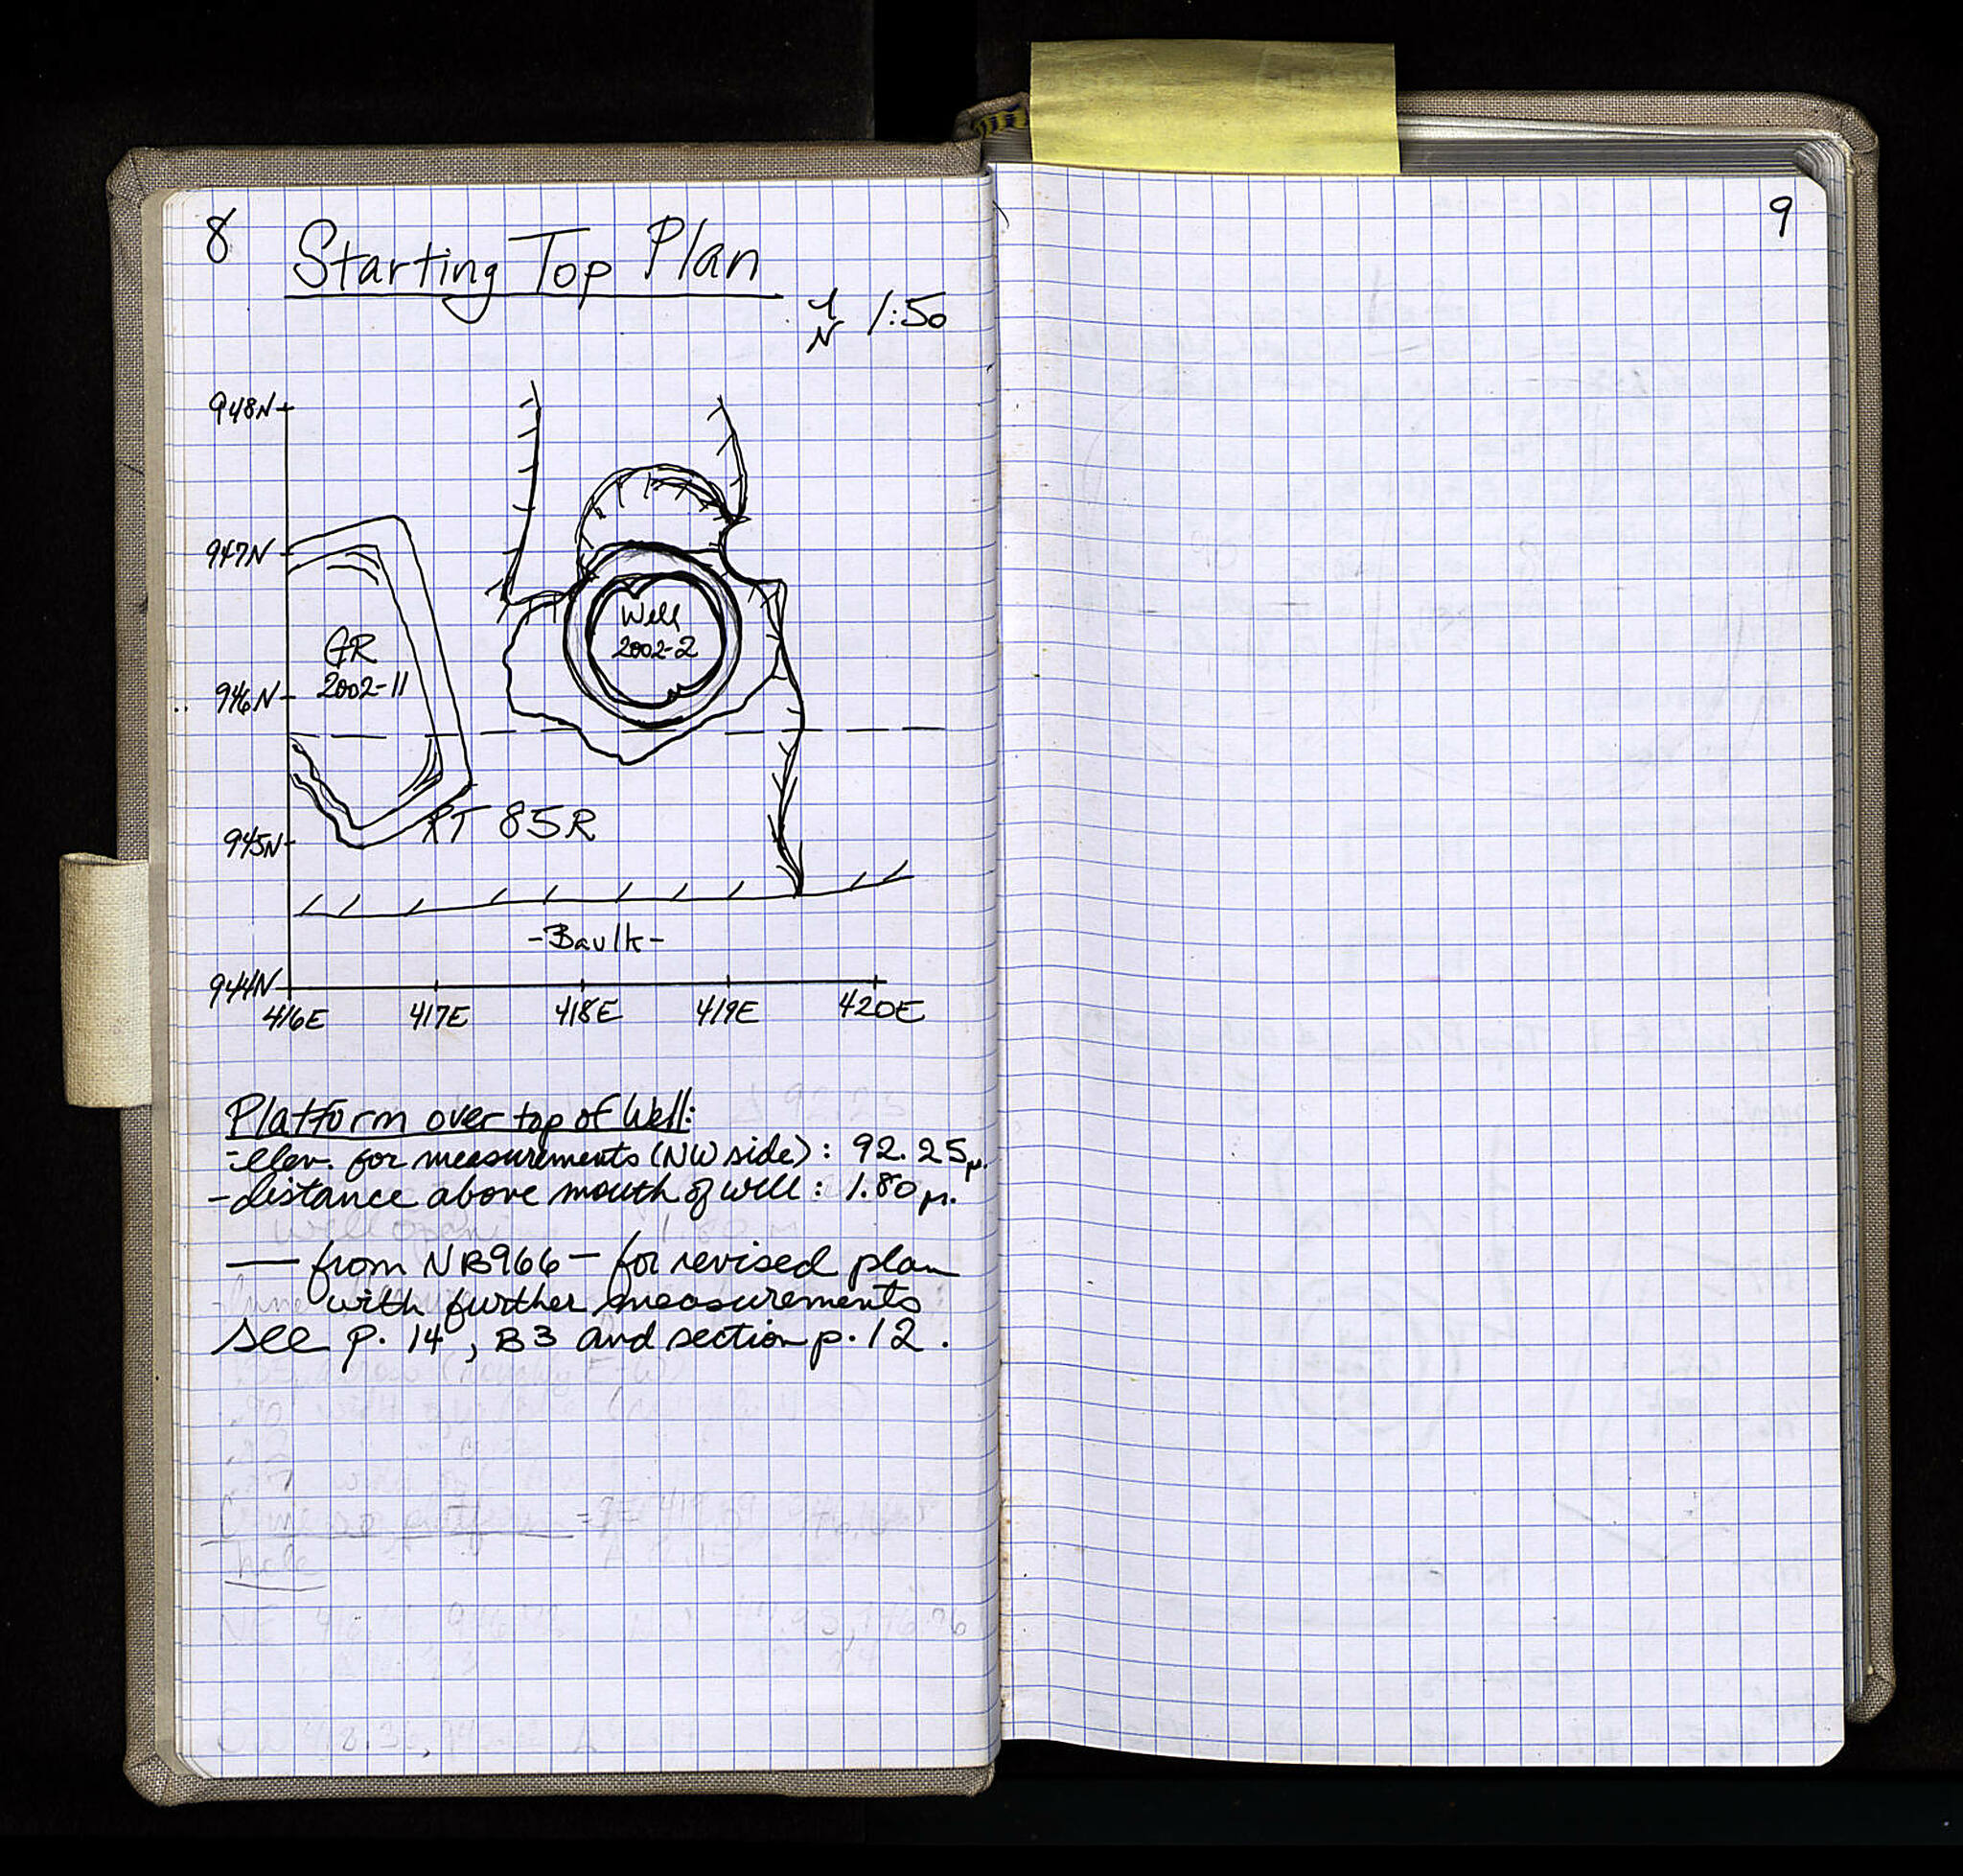 8
Starting Top Plan
N 1:50
948N
947N
Well
2002-2
GR
2002-11
946N
RT 85R
945N
-Baulk-
944N
416E 417E 418E 419E 420E
Platform over top of Well:
-elev. for measurements (NW side): 92.25m.
-distance above mouth of well: 1.80m.
— from NB966 — for revised plan
with further measurements
see p. 14, B3 and section p. 12.
9